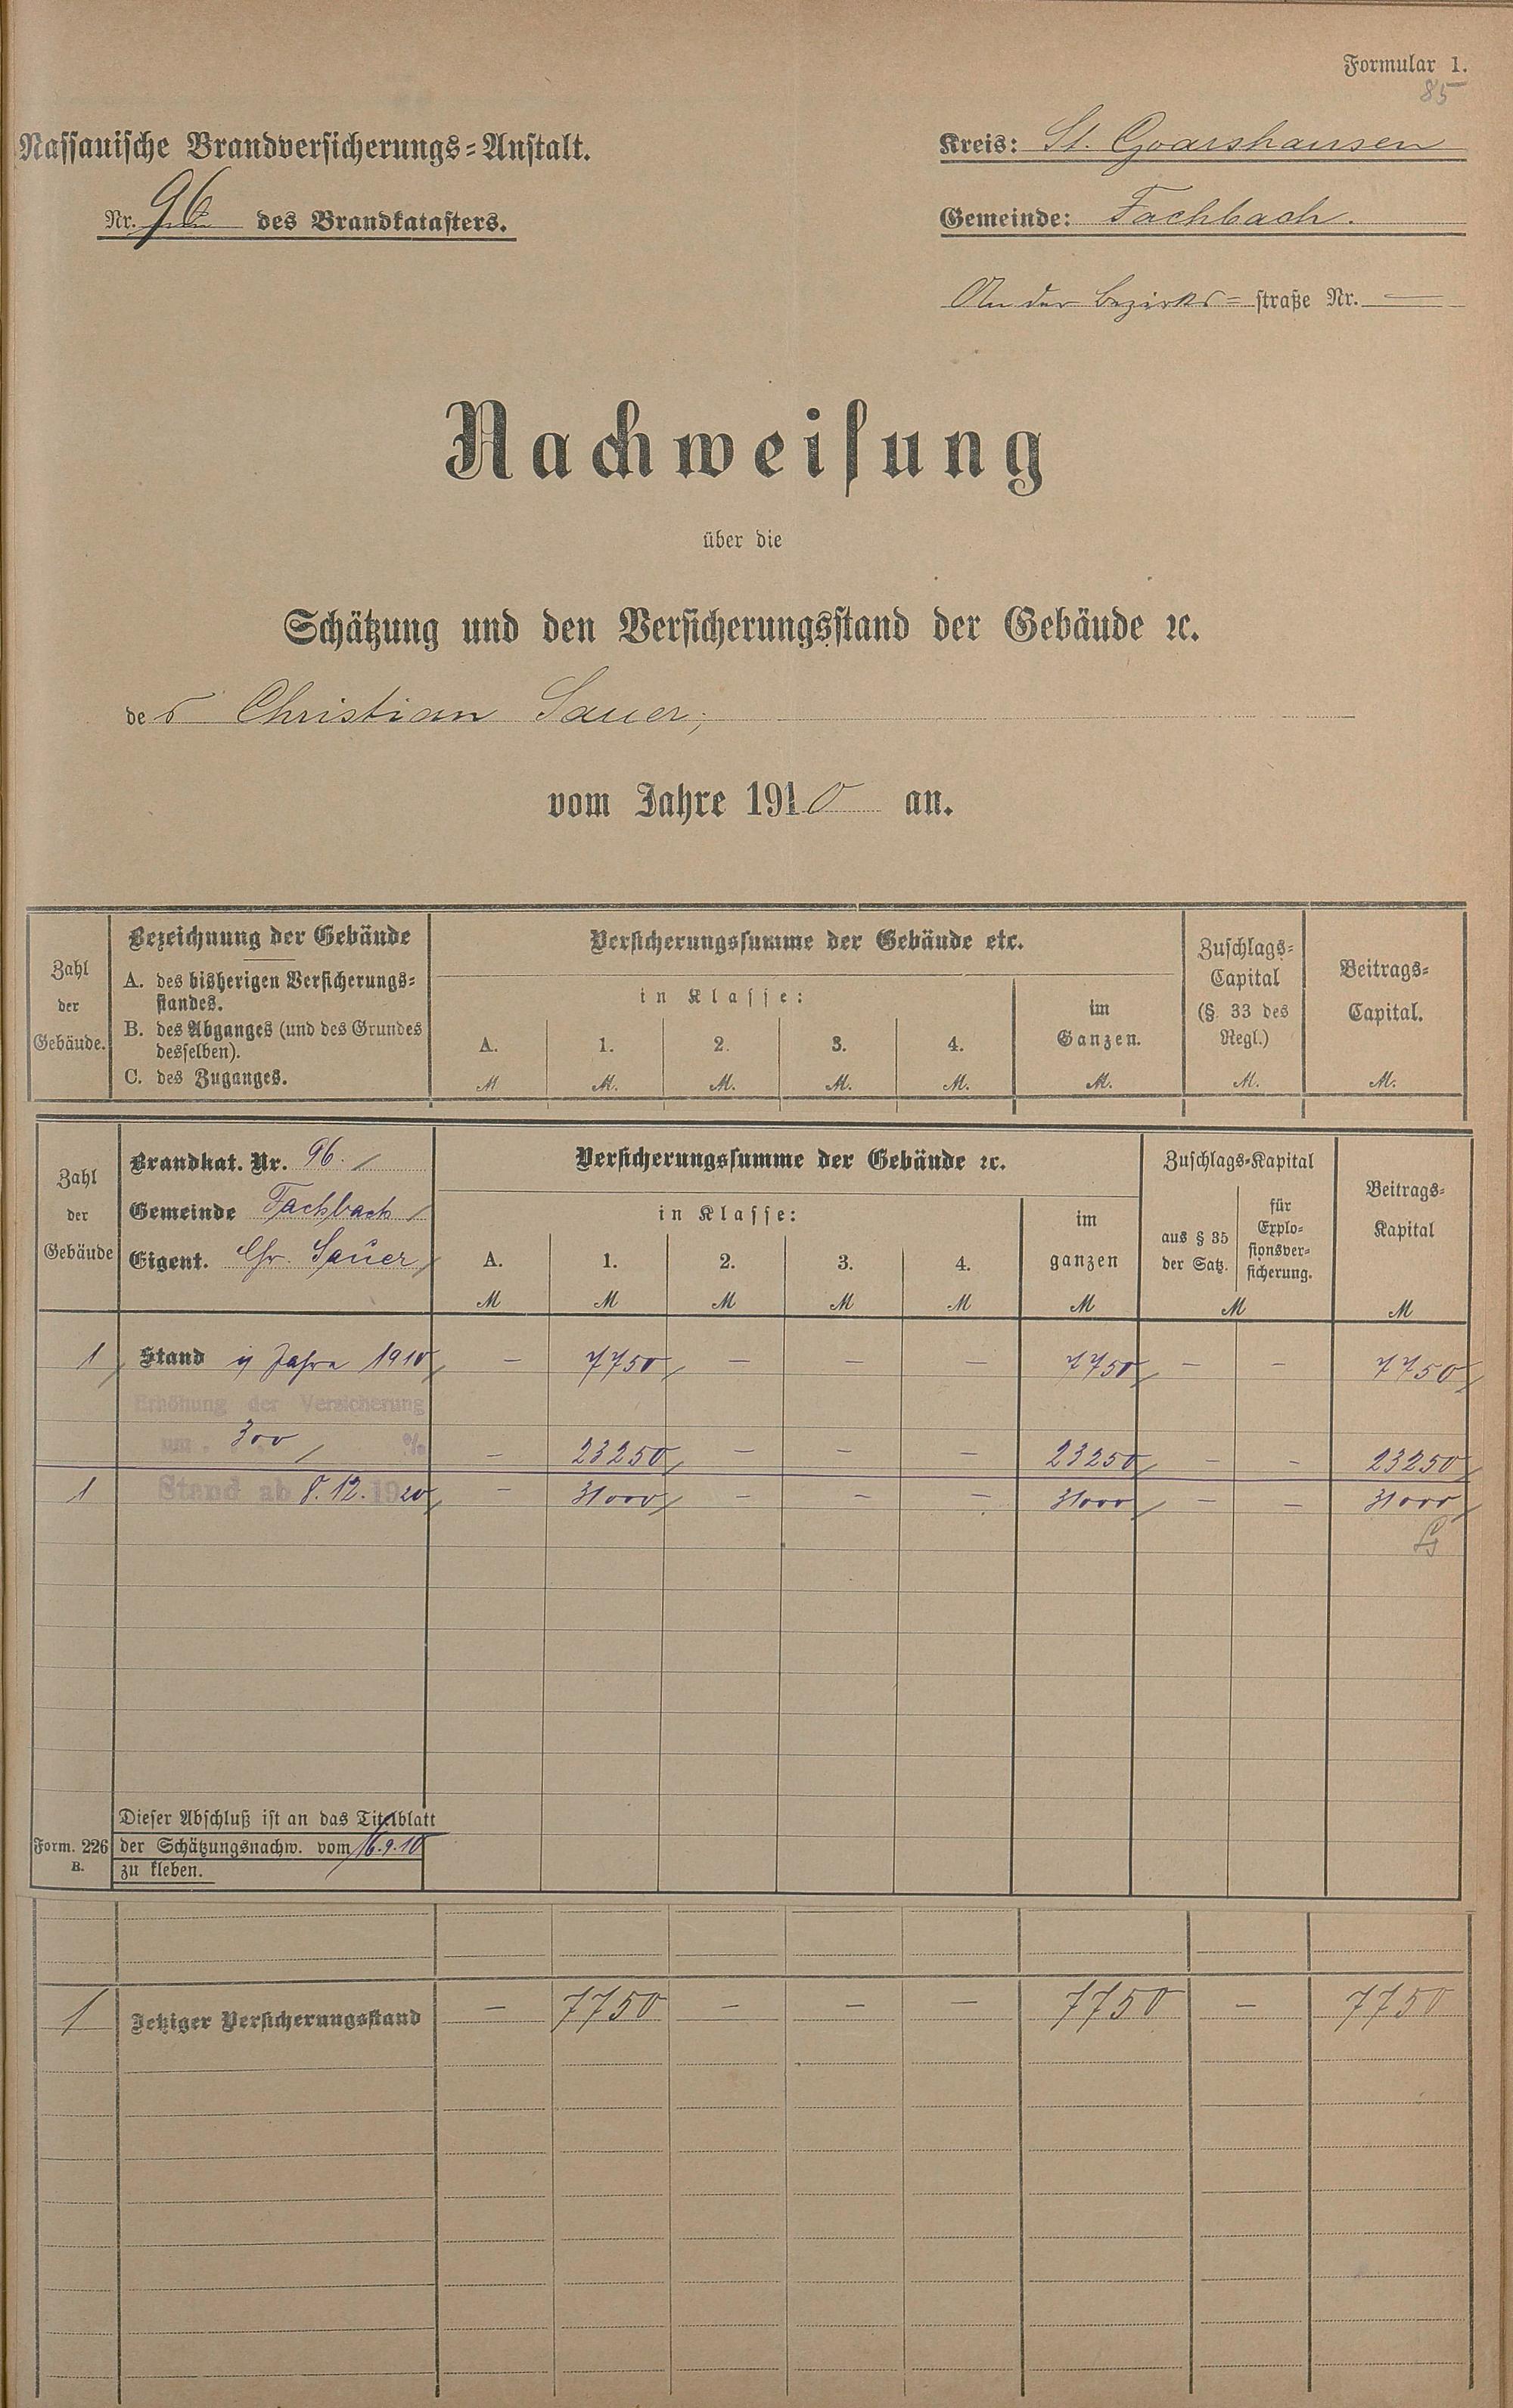 Formular 1.
85
Nassauische Brandversicherungs=Anstalt.
Kreis: St. Goarshausen
Nr. 96 des Brandkatasters.
Gemeinde: Fachbach.
An der Bezirks=straße Nr. —
Nachweisung
über die
Schätzung und den Versicherungsstand der Gebäude ꝛc.
des Christian Sauer,
vom Jahre 1910 an.
Zahl der Gebäude.
Bezeichnung der Gebäude
A. des bisherigen Versicherungs=
standes.
B. des Abganges (und des Grundes
desselben).
C. des Zuganges.
Versicherungssumme der Gebäude etc.
in Klasse:
A. 1. 2. 3. 4.
im Ganzen.
M M. M. M. M. M. M. M.
Zuschlags=
Capital
(§. 33 des
Regl.)
Beitrags=
Capital.
Zahl
der
Gebäude
Brandkat. Nr. 96.
Gemeinde Fachbach
Eigent. Chr. Sauer
Versicherungssumme der Gebäude ꝛc.
in Klasse:
A. 1. 2. 3. 4.
im
ganzen
M M M M M M M M
Zuschlags=Kapital
aus § 35
der Satz.
für
Explo=
sionsver=
sicherung.
Beitrags=
Kapital
1 Stand i Jahre 1910 — 7750 — — — 7750 — — 7750
Erhöhung der Versicherung
um 300 % — 23250 — — — 23250 — — 23250
1 Stand ab 8.12.1920 — 31000 — — — 31000 — — 31000
Dieser Abschluß ist an das Titelblatt
Form. 226 der Schätzungsnachw. vom 16.9.10
B. zu kleben.
1 Jetziger Versicherungsstand — 7750 — — — 7750 — 7750